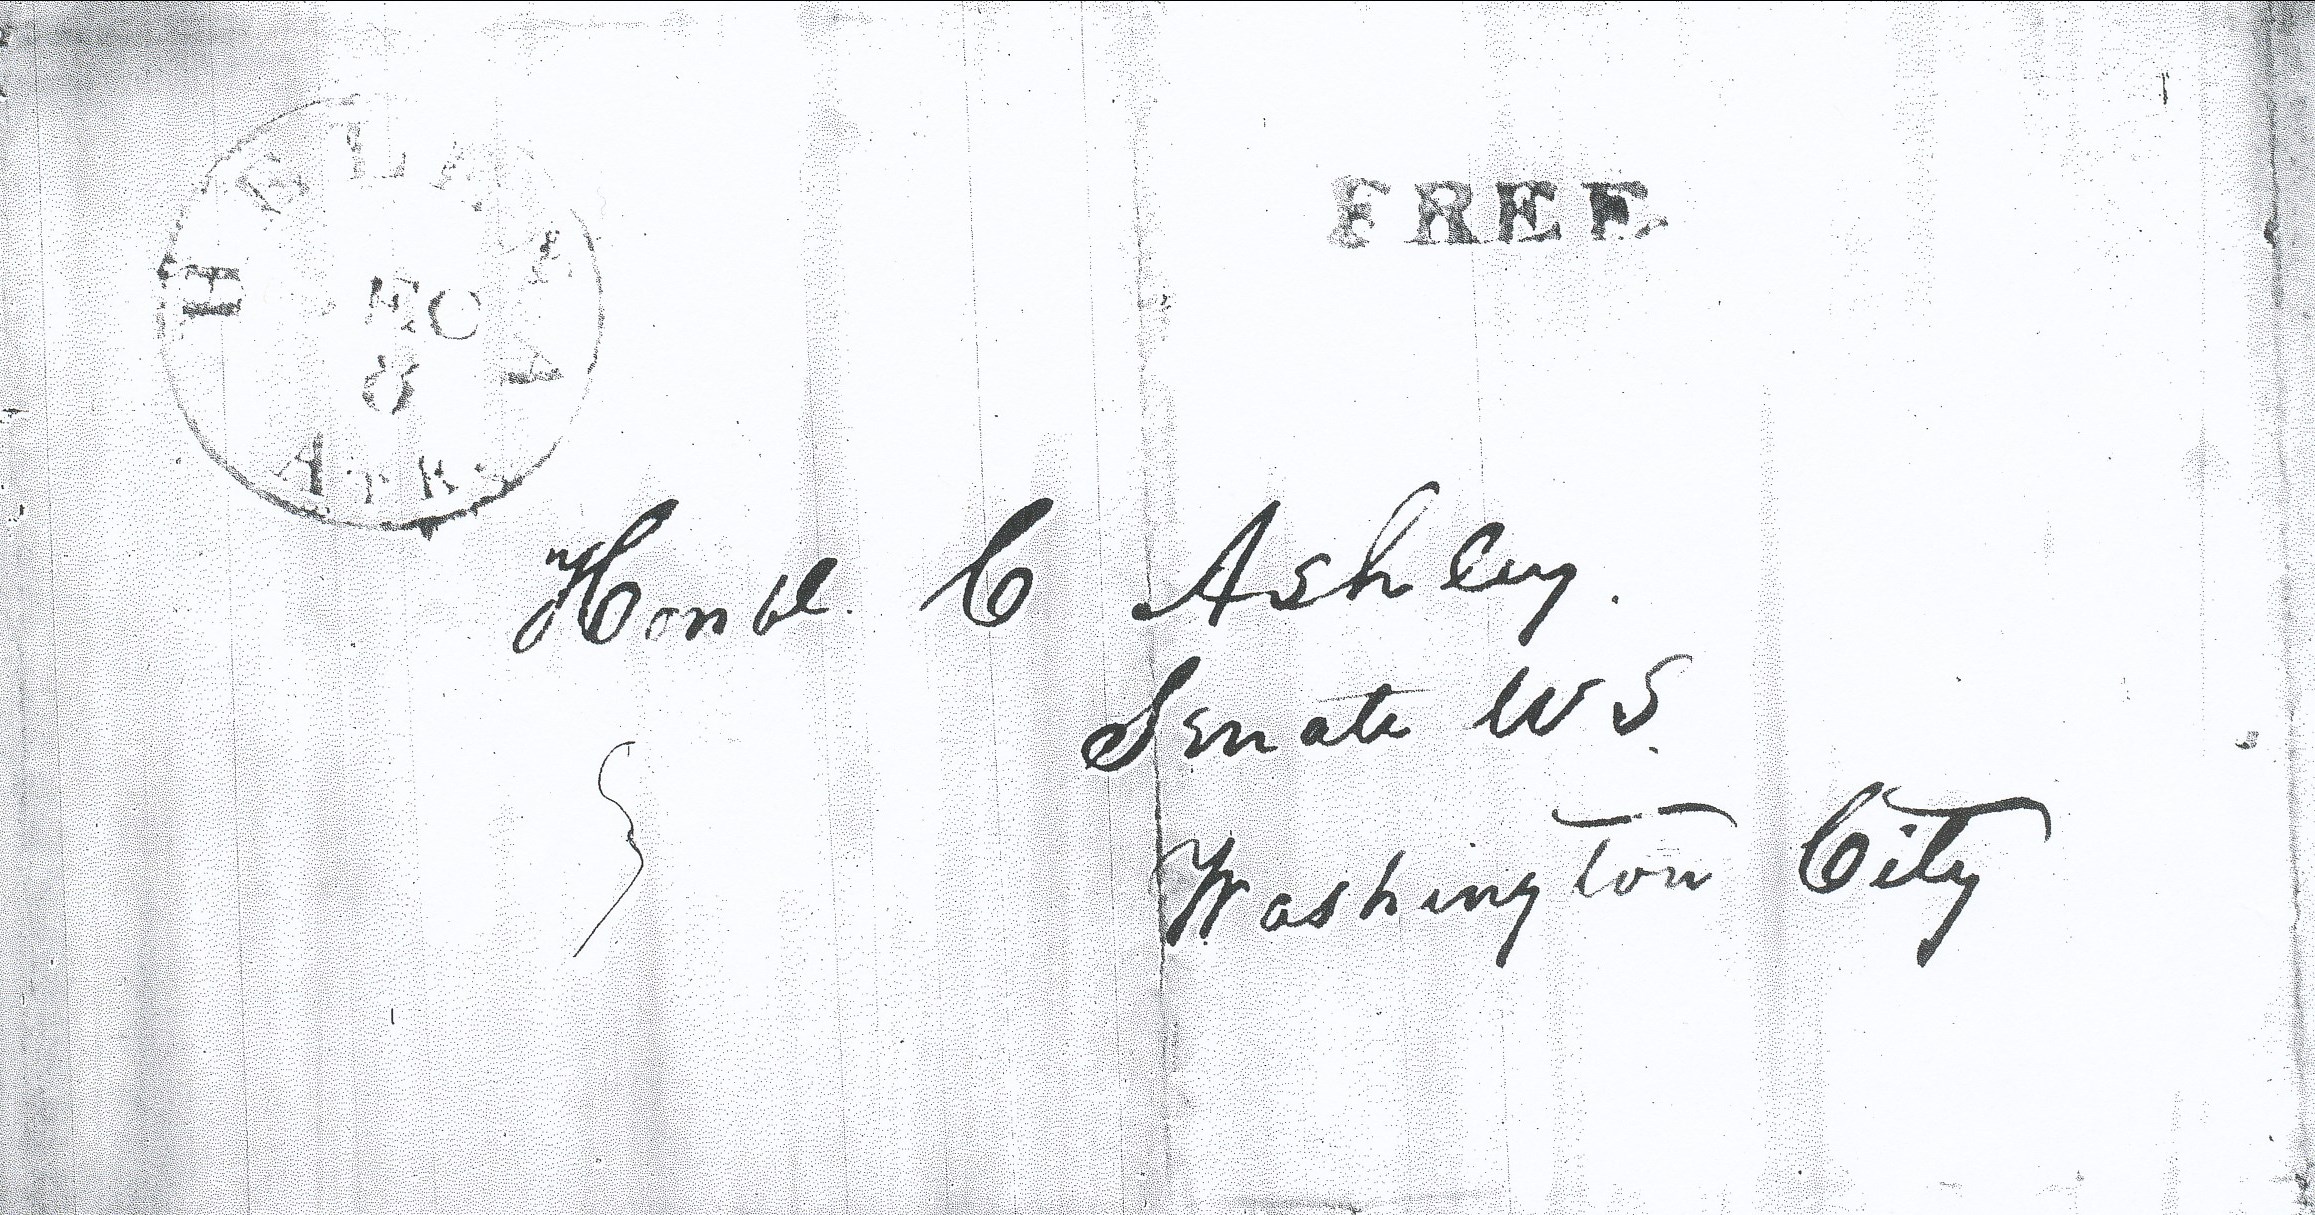 HELENA
DEC
8
ARK
FREE
Honbl. C Ashley.
Senate U S.
Washington City